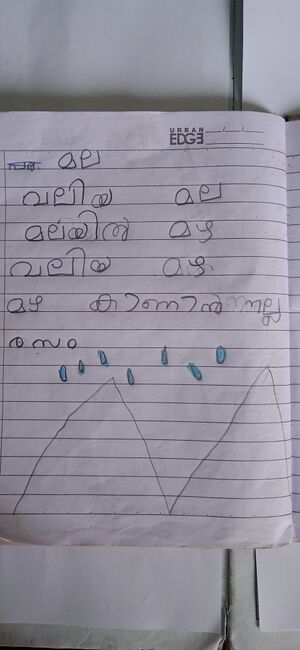 URBAN
EDGE
മല
വലിയ മല
മലയിൽ മഴ
വലിയ മഴ
മഴ കാണാൻ നല്ല
രസം